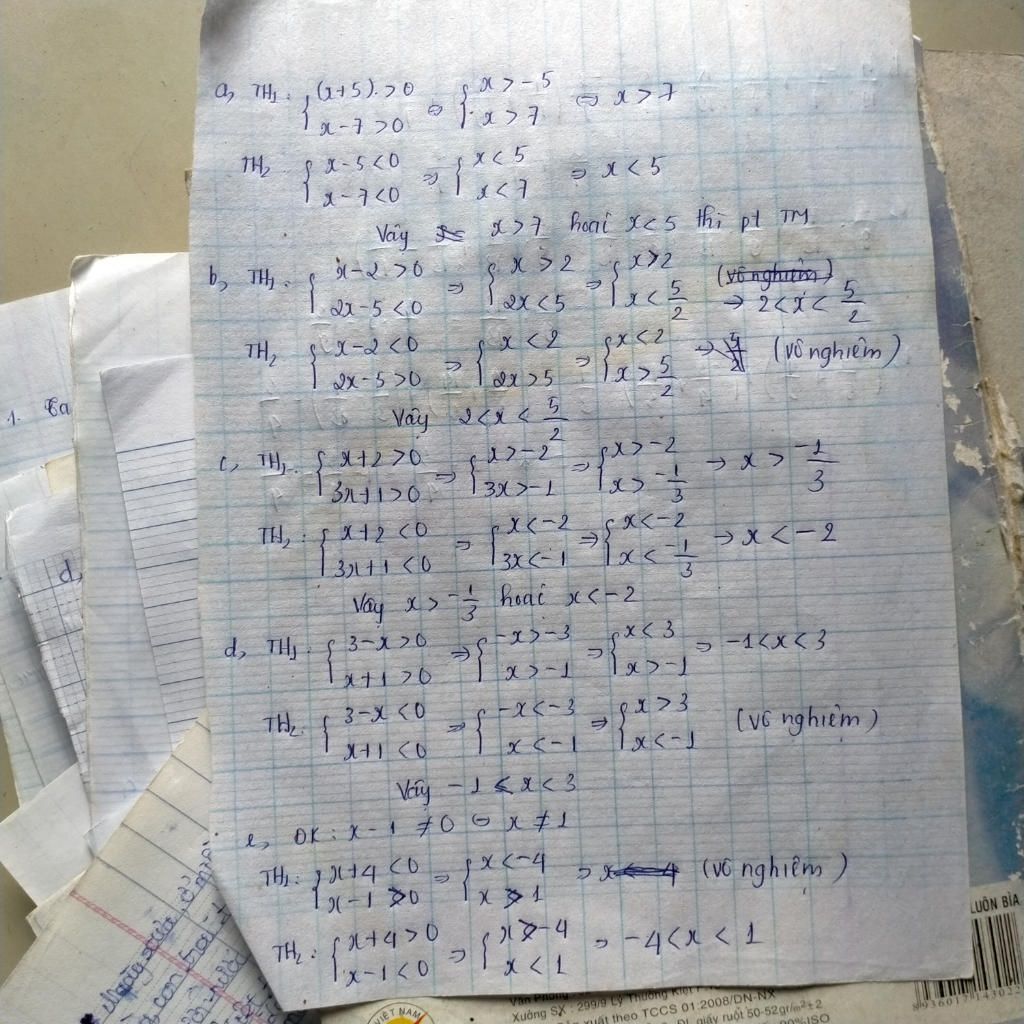 a, TH1: {(x+5) > 0 / x-7 > 0 ⇔ {x > -5 / x > 7 ⇔ x > 7
TH2 {x-5 < 0 / x-7 < 0 ⇒ {x < 5 / x < 7 ⇒ x < 5
Vậy x > 7 hoặc x < 5 thì pt TM
b, TH1: {x-2 > 0 / 2x-5 < 0 ⇒ {x > 2 / 2x < 5 ⇒ {x > 2 / x < 5/2 (vô nghiệm) → 2 < x < 5/2
TH2 {x-2 < 0 / 2x-5 > 0 ⇒ {x < 2 / 2x > 5 ⇒ {x < 2 / x > 5/2 ⇒ (vô nghiệm)
Vậy 2 < x < 5/2
c, TH1: {x+2 > 0 / 3x+1 > 0 ⇒ {x > -2 / 3x > -1 ⇒ {x > -2 / x > -1/3 → x > -1/3
TH2: {x+2 < 0 / 3x+1 < 0 ⇒ {x < -2 / 3x < -1 ⇒ {x < -2 / x < -1/3 → x < -2
Vậy x > -1/3 hoặc x < -2
d, TH1: {3-x > 0 / x+1 > 0 ⇒ {-x > -3 / x > -1 ⇒ {x < 3 / x > -1 ⇒ -1 < x < 3
TH2: {3-x < 0 / x+1 < 0 ⇒ {-x < -3 / x < -1 ⇒ {x > 3 / x < -1 (vô nghiệm)
Vậy -1 < x < 3
e, ĐK: x-1 ≠ 0 ⇔ x ≠ 1
TH1: {x+4 < 0 / x-1 > 0 ⇒ {x < -4 / x > 1 ⇒ x < -4 (vô nghiệm)
TH2: {x+4 > 0 / x-1 < 0 ⇒ {x > -4 / x < 1 ⇒ -4 < x < 1
1.
d,
LUÔN BÌA
8936017143022
VIỆT NAM
Văn Phòng
Xưởng SX : 299/9 Lý Thường Kiệt
xuất theo TCCS 01:2008/DN-NX
giấy ruột 50-52gr/m²±2
90%ISO